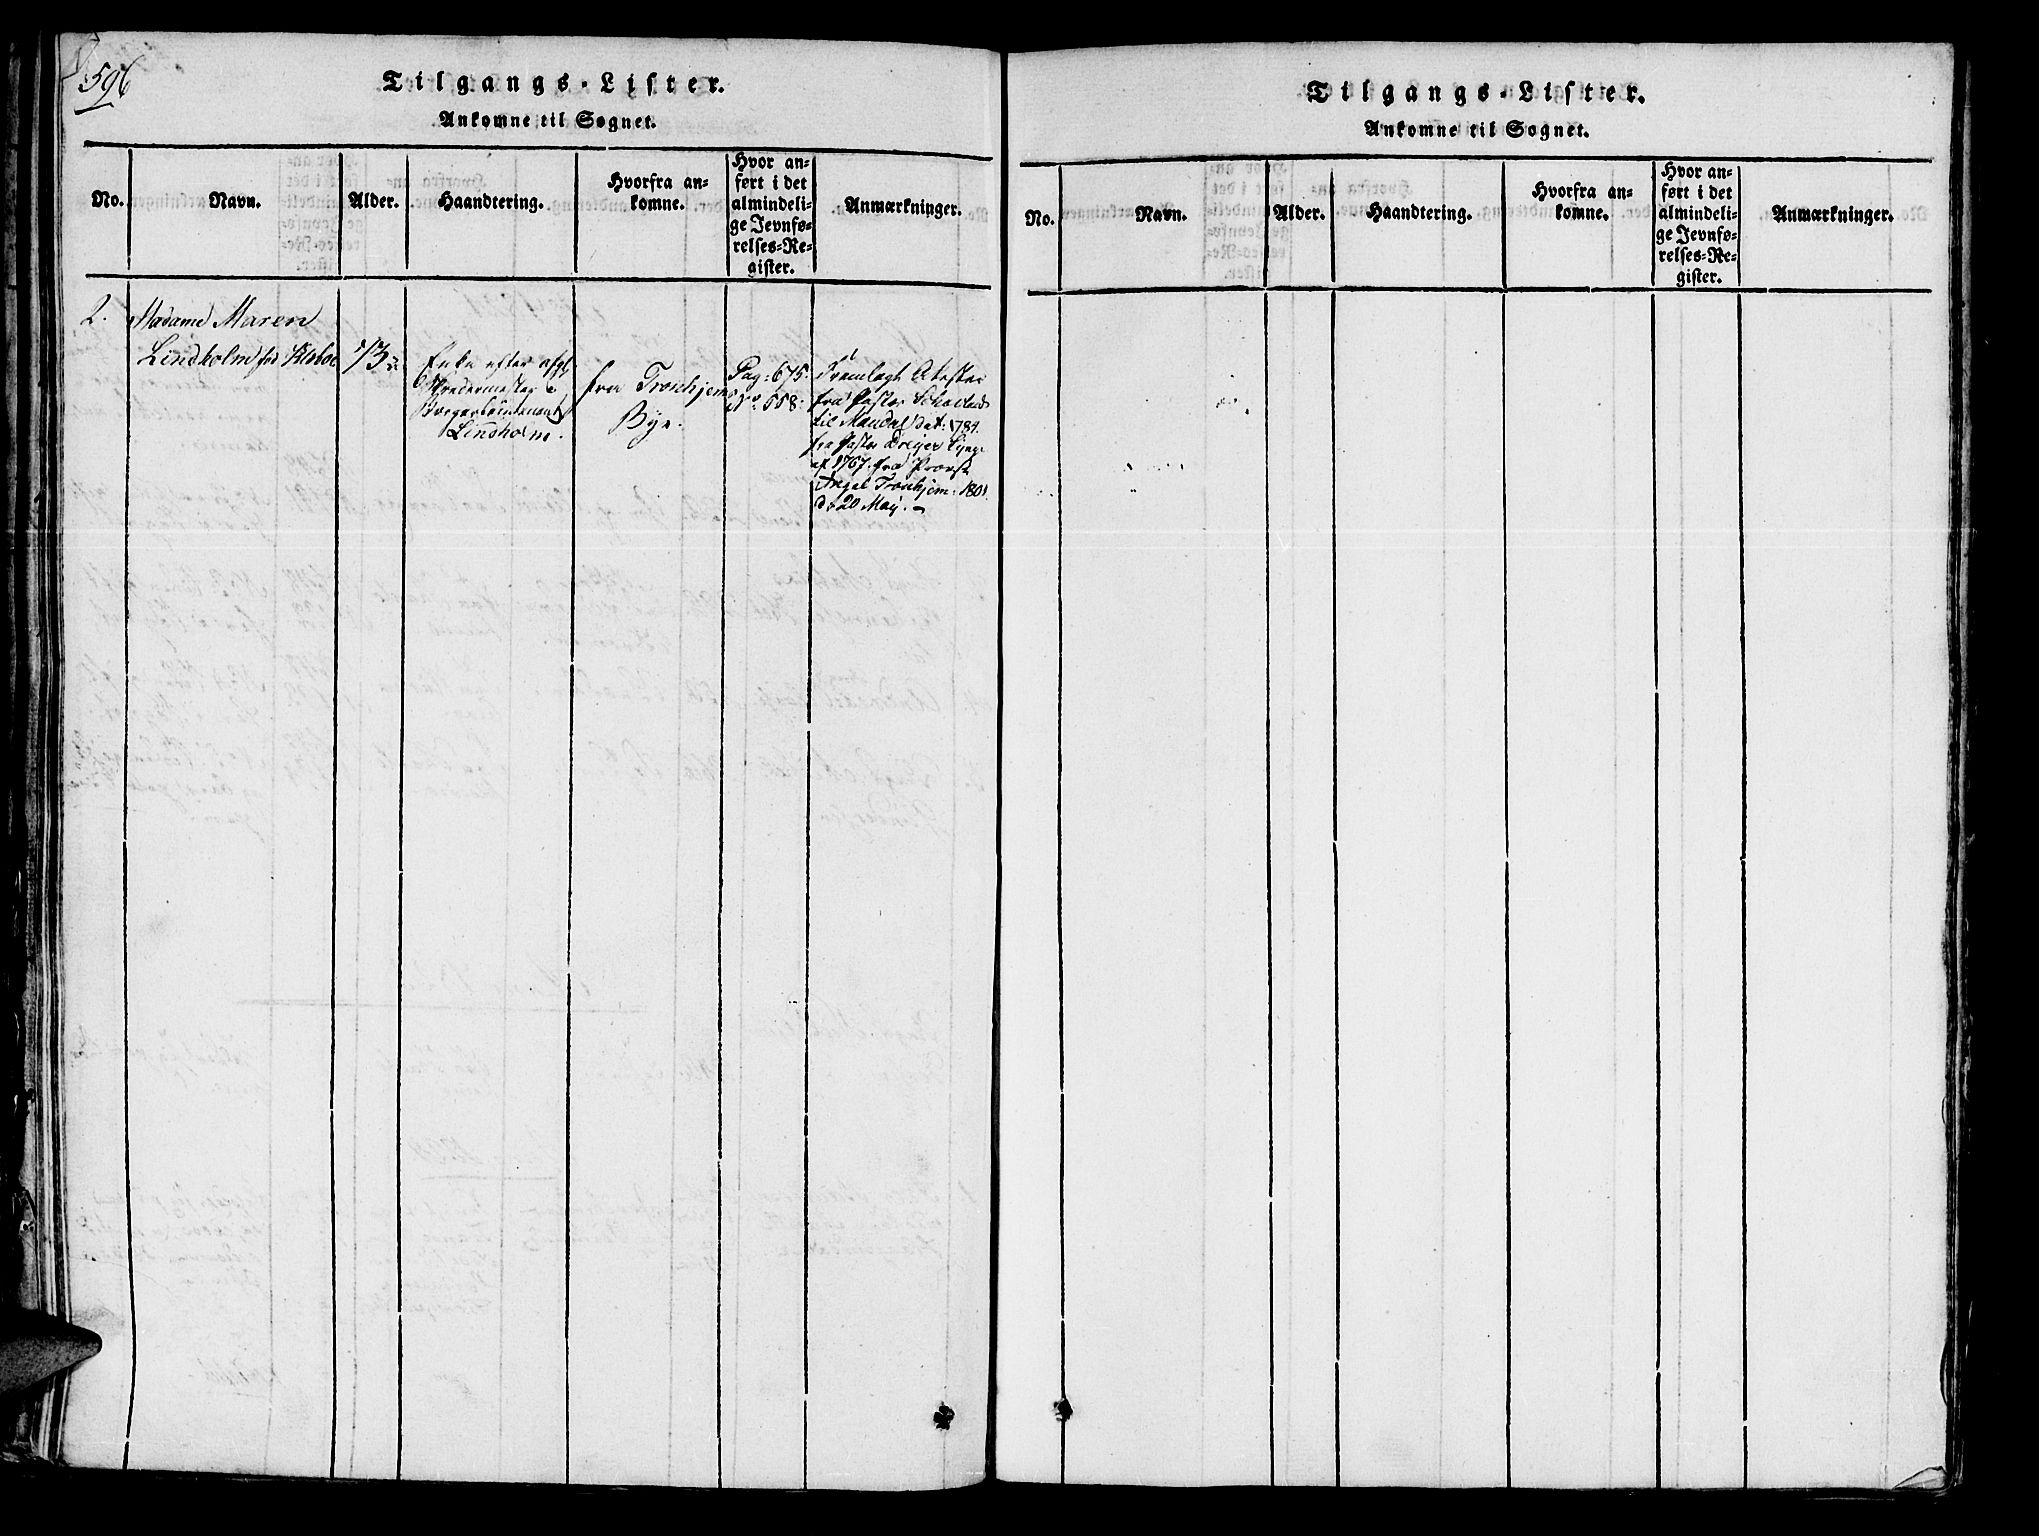 596
Tilgangs-Lister.
Ankomne til Sognet.
No.
Navn.
Alder.
Haandtering.
Hvorfra an-
komne.
Hvor an-
ført i det
almindeli-
ge Jevnfø-
relses-Re-
gister.
Anmærkninger.
2.
Madame Maren
Lindholm fød
73
Enke efter
Borgerlieutenant
Lindholm.
fra Tronhjems
Bye.
Pag: 675.
No. 558.
Fremlagt Attester
fra Pastor
til Mandal dat: 1784.
fra Pastor Dreyer
af 1767. fra Provst
Angel Tronhjem. 1801.
d. 20 May. -
Tilgangs-Lister.
Ankomne til Sognet.
No.
Navn.
Alder.
Haandtering.
Hvorfra an-
komne.
Hvor an-
ført i det
almindeli-
ge Jevnfø-
relses-Re-
gister.
Anmærkninger.